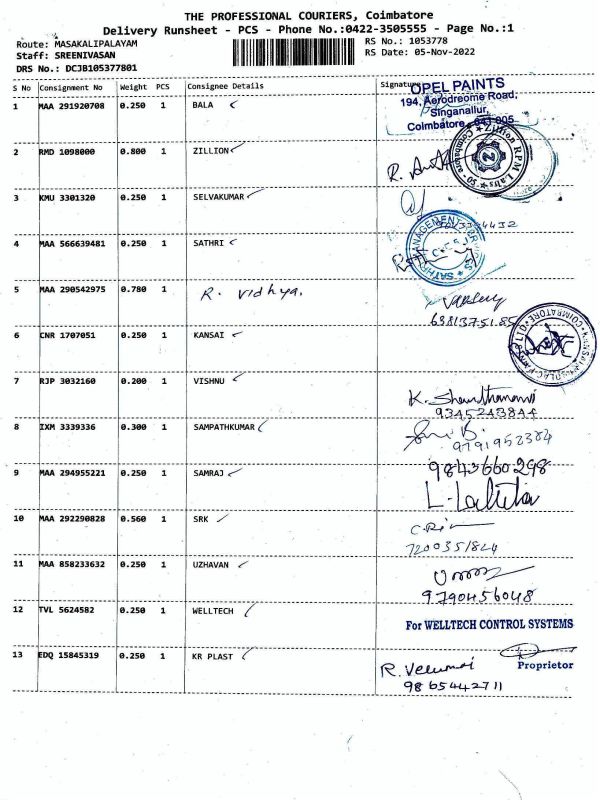 THE PROFESSIONAL COURIERS, Coimbatore
Delivery Runsheet - PCS - Phone No.:0422-3505555 - Page No.:1
Route: MASAKALIPALAYAM
RS No.: 1053778
Staff: SREENIVASAN
RS Date: 05-Nov-2022
DRS No.: DCJB105377801
S No Consignment No Weight PCS Consignee Details Signature
OPEL PAINTS
194, Aerodreome Road,
Singanallur,
Coimbatore - 641 005
1 MAA 291920708 0.250 1 BALA
2 RMD 1098000 0.800 1 ZILLION
RPM Labs
3 KMU 3301320 0.250 1 SELVAKUMAR
4 MAA 566639481 0.250 1 SATHRI
5 MAA 290542975 0.780 1 R. Vidhya.
6381375185
6 CNR 1707051 0.250 1 KANSAI
7 RJP 3032160 0.200 1 VISHNU
9345243844
8 IXM 3339336 0.300 1 SAMPATHKUMAR
9791952384
9 MAA 294955221 0.250 1 SAMRAJ
9843660298
L. Lalita
10 MAA 292290828 0.560 1 SRK
7200351824
11 MAA 858233632 0.250 1 UZHAVAN
9790456048
12 TVL 5624582 0.250 1 WELLTECH
For WELLTECH CONTROL SYSTEMS
Proprietor
13 EDQ 15845319 0.250 1 KR PLAST
9865442711